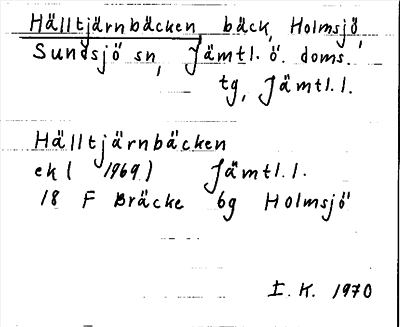 Hälltjärnbäcken, bäck, Holmsjö,
Sundsjö sn, Jämtl. ö. doms.
tg, Jämtl. l.
Hälltjärnbäcken
ek ( 1969 ) Jämtl. l.
18 F Bräcke 6g Holmsjö
I. K. 1970